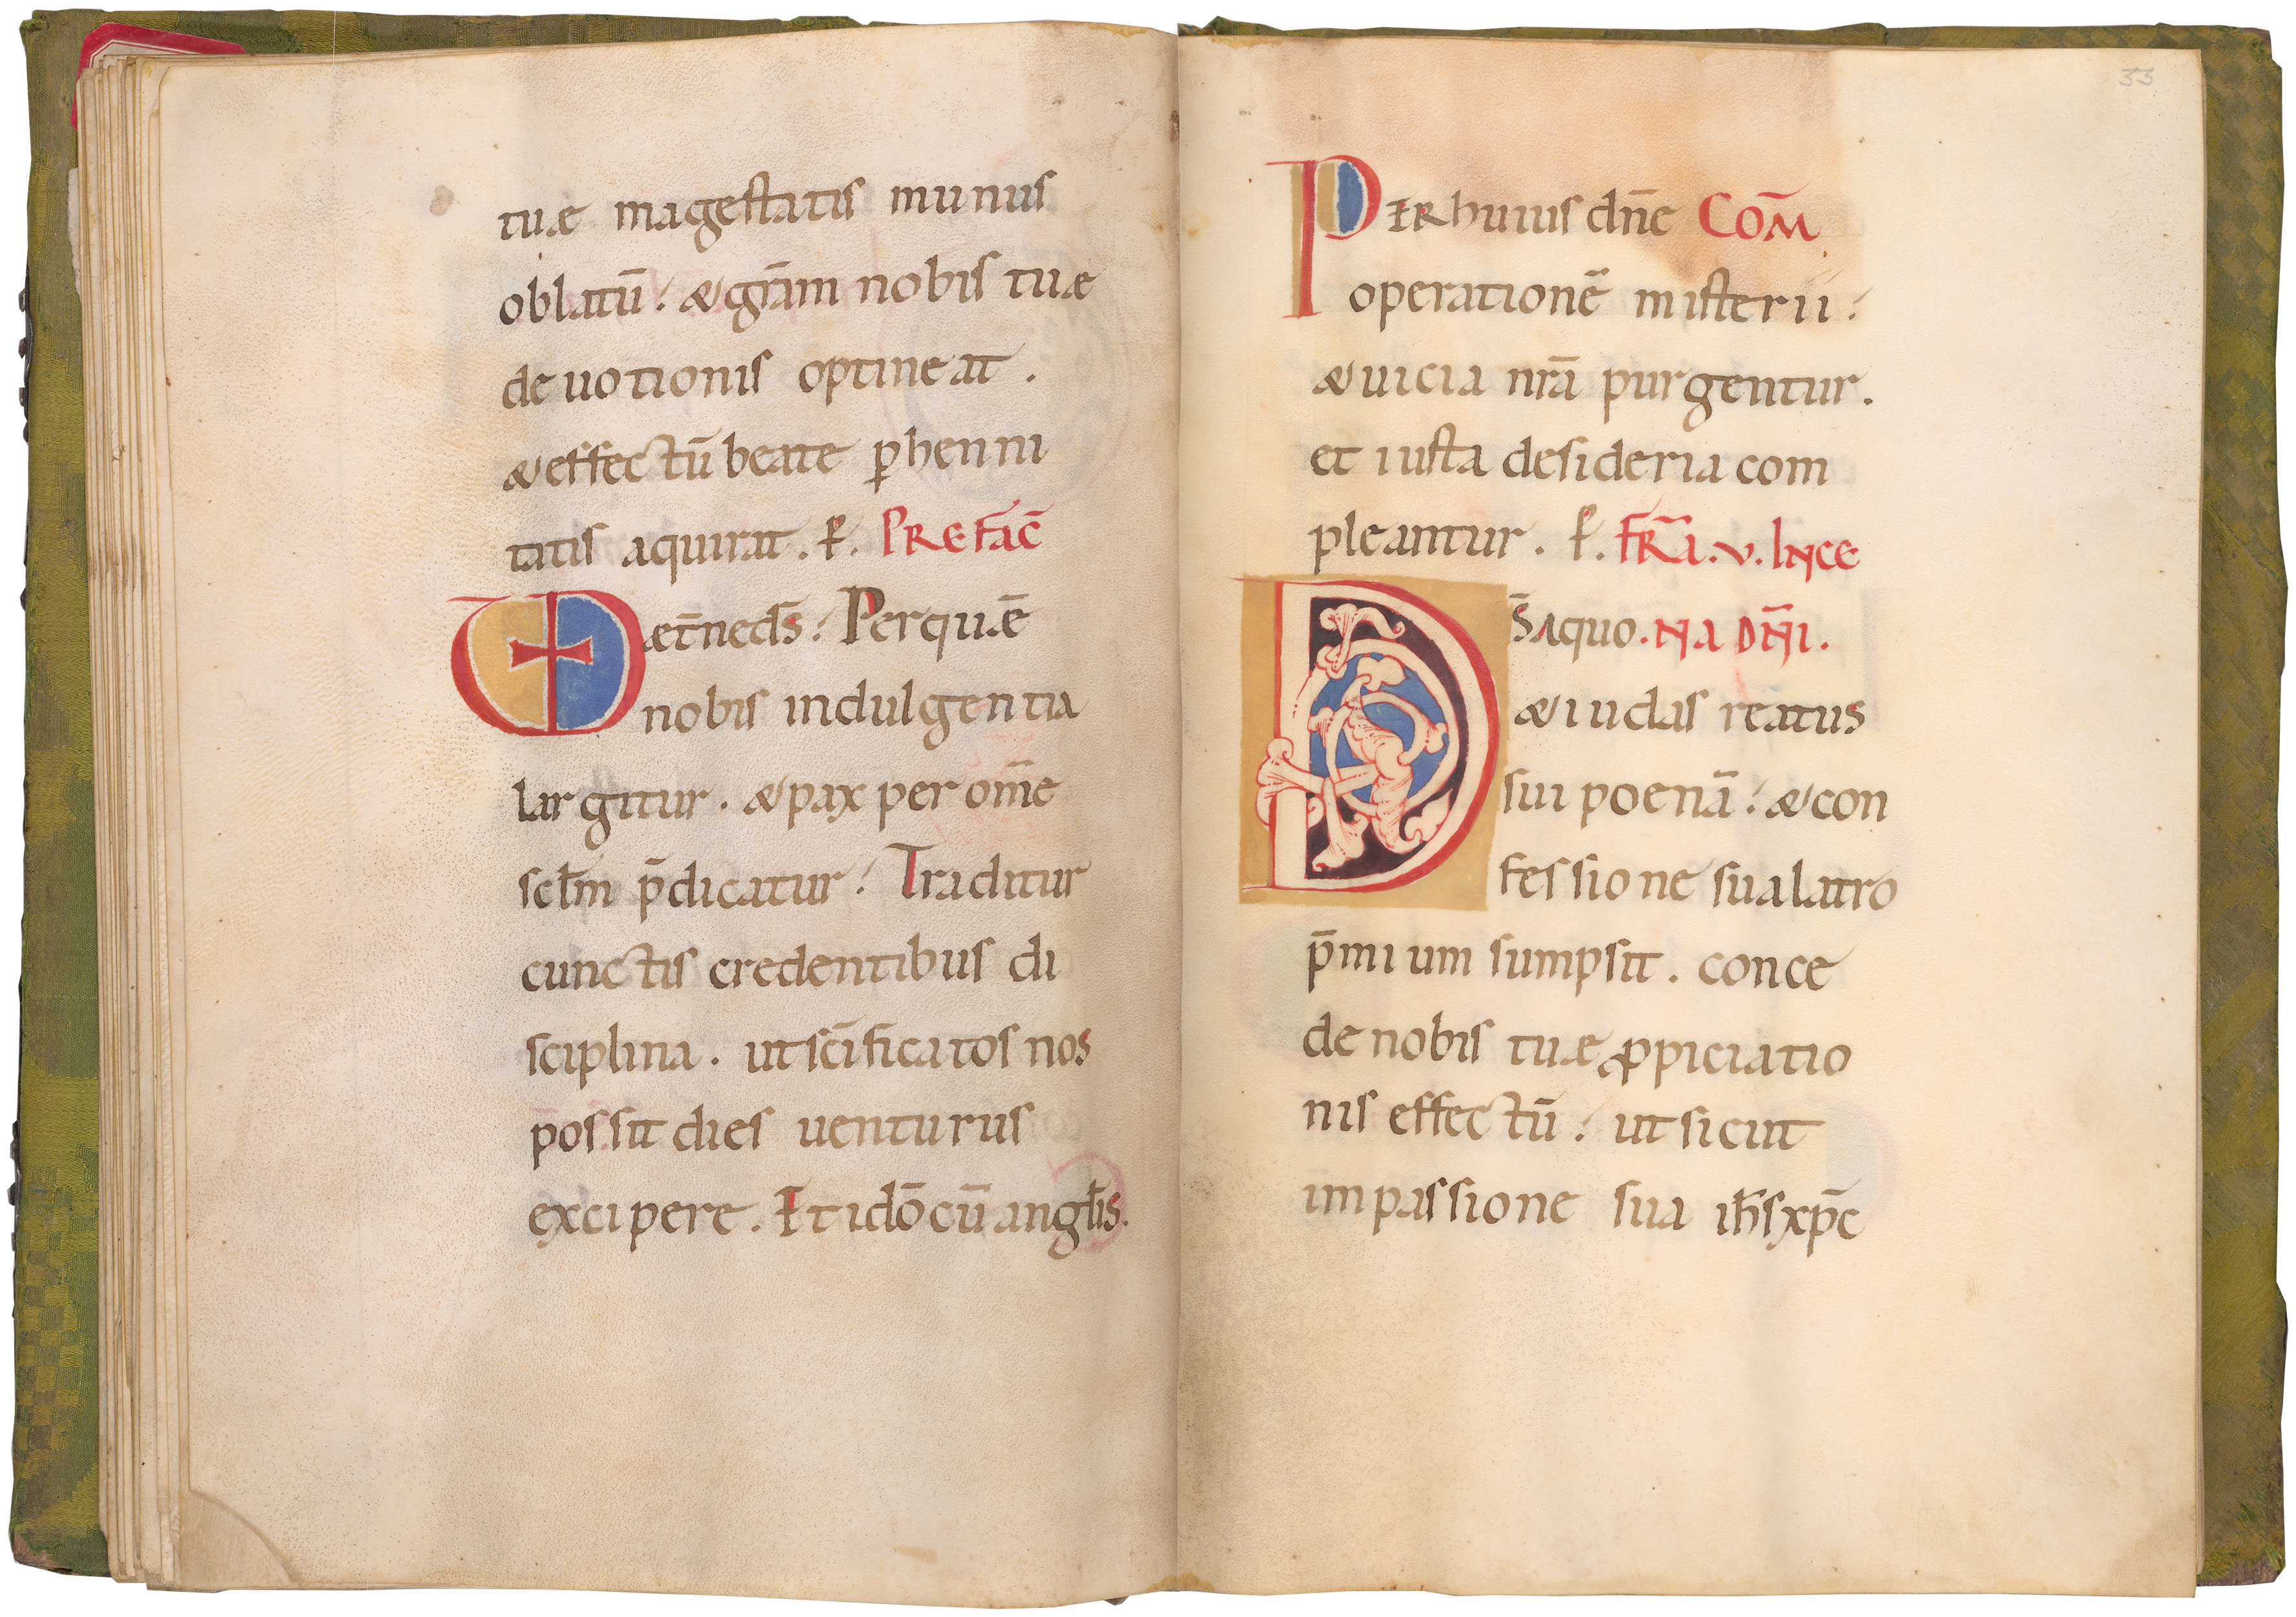 tuæ magestatis munus
oblatū. &grām nobis tuæ
deuotionis optineat.
&effectū beate ꝑhenni
tatis aquirat. ꝑ. PREFAC̄
VD æt̄neds̄. Per quē
nobis indulgentia
largitur. &pax per om̄e
sclm̄ p̄dicatur. Traditur
cunctis credentibus di
sciplina. ut sc̄ificatos nos
possit dies uenturus
excipere. Et idō cū anglis.
33
PER huius dn̄e COM̄
operationē misterii.
&uicia nrā purgentur.
et iusta desideria com
pleantur. ꝑ. FR̄A. V. IN CE
DS̄ A quo. NA DN̄I.
&iudas reatus
sui poenā. &con
fessione sua latro
p̄mium sumpsit. conce
de nobis tuæ ꝓpiciatio
nis effectū. ut sicut
im passione sua ih̄s xp̄c